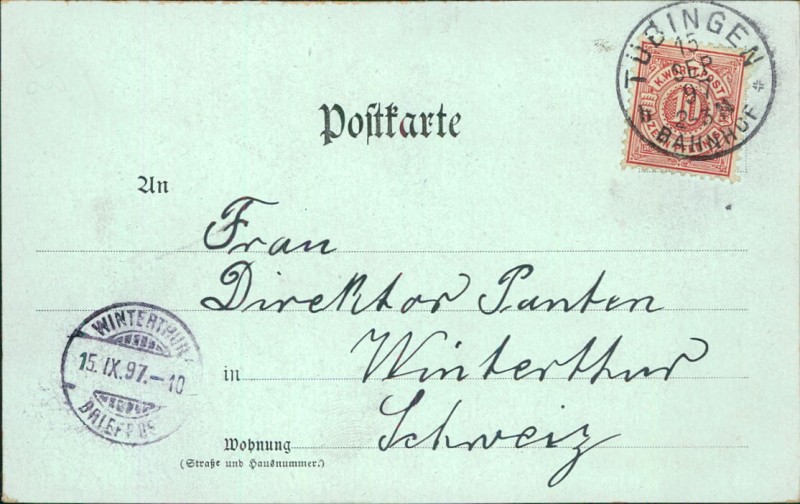 Postkarte
TÜBINGEN
15
SEP
97
2-3 N
BAHNHOF
K. WÜRTT. POST
10
An
Frau
Direktor Panten
in Winterthur
Schweiz
WINTERTHUR
15. IX. 97.-10
BRIEFPOST
Wohnung
(Straße und Hausnummer.)